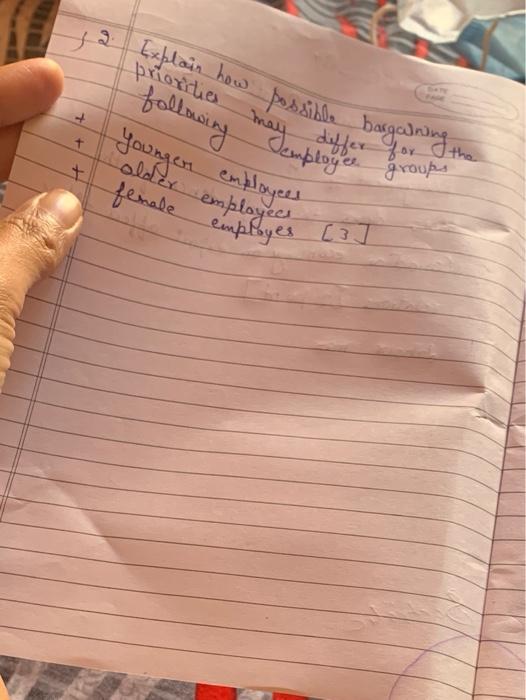 2. Explain how possible bargaining
priorities may differ for the
following employee groups
+ Younger employees
+ older employees
+ female employes [3]
DATE
PAGE